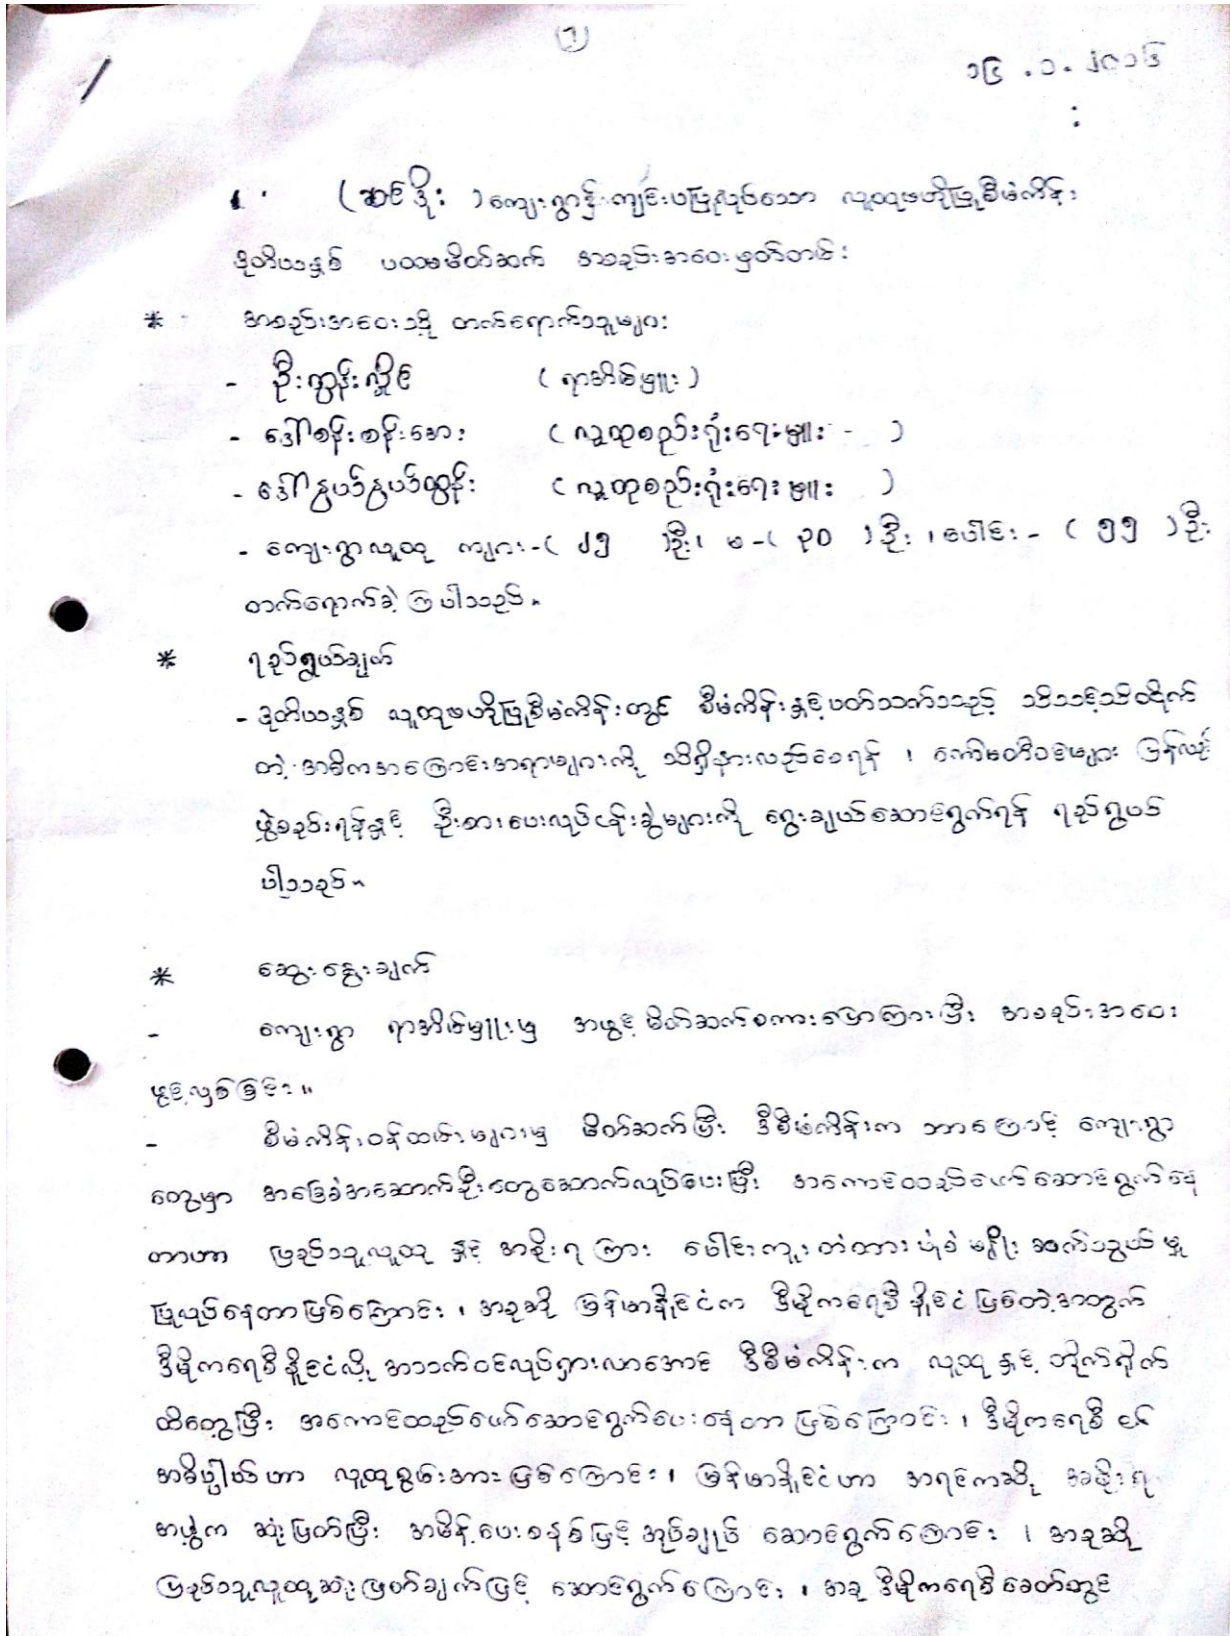 (၇)
၁၄ . ၁ . ၂၀၁၆
၁. (ဆင်ဒိုး) ကျေးရွာ၌ ကျင်းပပြုလုပ်သော လူထုဗဟိုပြုစီမံကိန်း
ဒုတိယနှစ် ပထမမိတ်ဆက် အစည်းအဝေးမှတ်တမ်း
* အစည်းအဝေးသို့ တက်ရောက်သူများ
- ဦးထွန်းလှိုင် (ရာအိမ်မှူး)
- ဒေါ်စန်းစန်းအေး (လူထုစည်းရုံးရေးမှူး - )
- ဒေါ်နွယ်နွယ်ထွန်း (လူထုစည်းရုံးရေးမှူး )
- ကျေးရွာလူထု ကျား-( ၂၅ )ဦး၊ မ-( ၃၀ )ဦး ၊ပေါင်း - ( ၅၅ )ဦး
တက်ရောက်ခဲ့ကြပါသည်။
* ရည်ရွယ်ချက်
- ဒုတိယနှစ် လူထုဗဟိုပြုစီမံကိန်းတွင် စီမံကိန်းနှင့်ပတ်သက်သည့် သိသင့်သိထိုက်
တဲ့ အဓိကအကြောင်းအရာများကို သိရှိနားလည်စေရန် ၊ ကော်မတီဝင်များ ပြန်လည်
ဖွဲ့စည်းရန်နှင့် ဦးစားပေးလုပ်ငန်းခွဲများကို ရွေးချယ်ဆောင်ရွက်ရန် ရည်ရွယ်
ပါသည်။
* ဆွေးနွေးချက်
- ကျေးရွာ ရာအိမ်မှူးမှ အဖွင့်မိတ်ဆက်စကားပြောကြားပြီး အစည်းအဝေး
ဖွင့်လှစ်ခြင်း။
- စီမံကိန်းဝန်ထမ်းများမှ မိတ်ဆက်ပြီး ဒီစီမံကိန်းက ဘာကြောင့် ကျေးရွာ
တွေမှာ အခြေခံအဆောက်အဦးတွေဆောက်လုပ်ပေးပြီး အကောင်ထည်ဖော်ဆောင်ရွက်နေ
တာဟာ ပြည်သူလူထု နှင့် အစိုးရ ကြား ပေါင်းကူးတံတားပုံစံ မျိုး ဆက်သွယ်မှု
ပြုလုပ်နေတာဖြစ်ကြောင်း ၊ အခုဆို မြန်မာနိုင်ငံက ဒီမိုကရေစီ နိုင်ငံ ဖြစ်တဲ့အတွက်
ဒီမိုကရေစီနိုင်ငံလို့ အသက်ဝင်လှုပ်ရှားလာအောင် ဒီစီမံကိန်းက လူထု နှင့် တိုက်ရိုက်
ထိတွေ့ပြီး အကောင်ထည်ဖော်ဆောင်ရွက်ပေးနေတာ ဖြစ်ကြောင်း ၊ ဒီမိုကရေစီ ၎င်း
အဓိပ္ပါယ်ဟာ လူထုစွမ်းအား ဖြစ်ကြောင်း ၊ မြန်မာနိုင်ငံဟာ အရင်ကဆို အစိုးရ
အဖွဲ့က ဆုံးဖြတ်ပြီး အမိန့်ပေးစနစ်ဖြင့် အုပ်ချုပ် ဆောင်ရွက်ကြောင်း ၊ အခုဆို
ပြည်သူလူထုဆုံးဖြတ်ချက်ဖြင့် ဆောင်ရွက်ကြောင်း ၊ အခု ဒီမိုကရေစီခေတ်တွင်